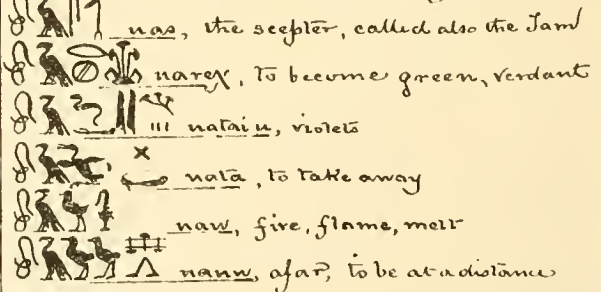 nas, the scepter, called also the Tam
narex, to become green, verdant
nataiu, violets
nata, to take away
naw, fire, flame, melt
nanw, afar, to be at a distance